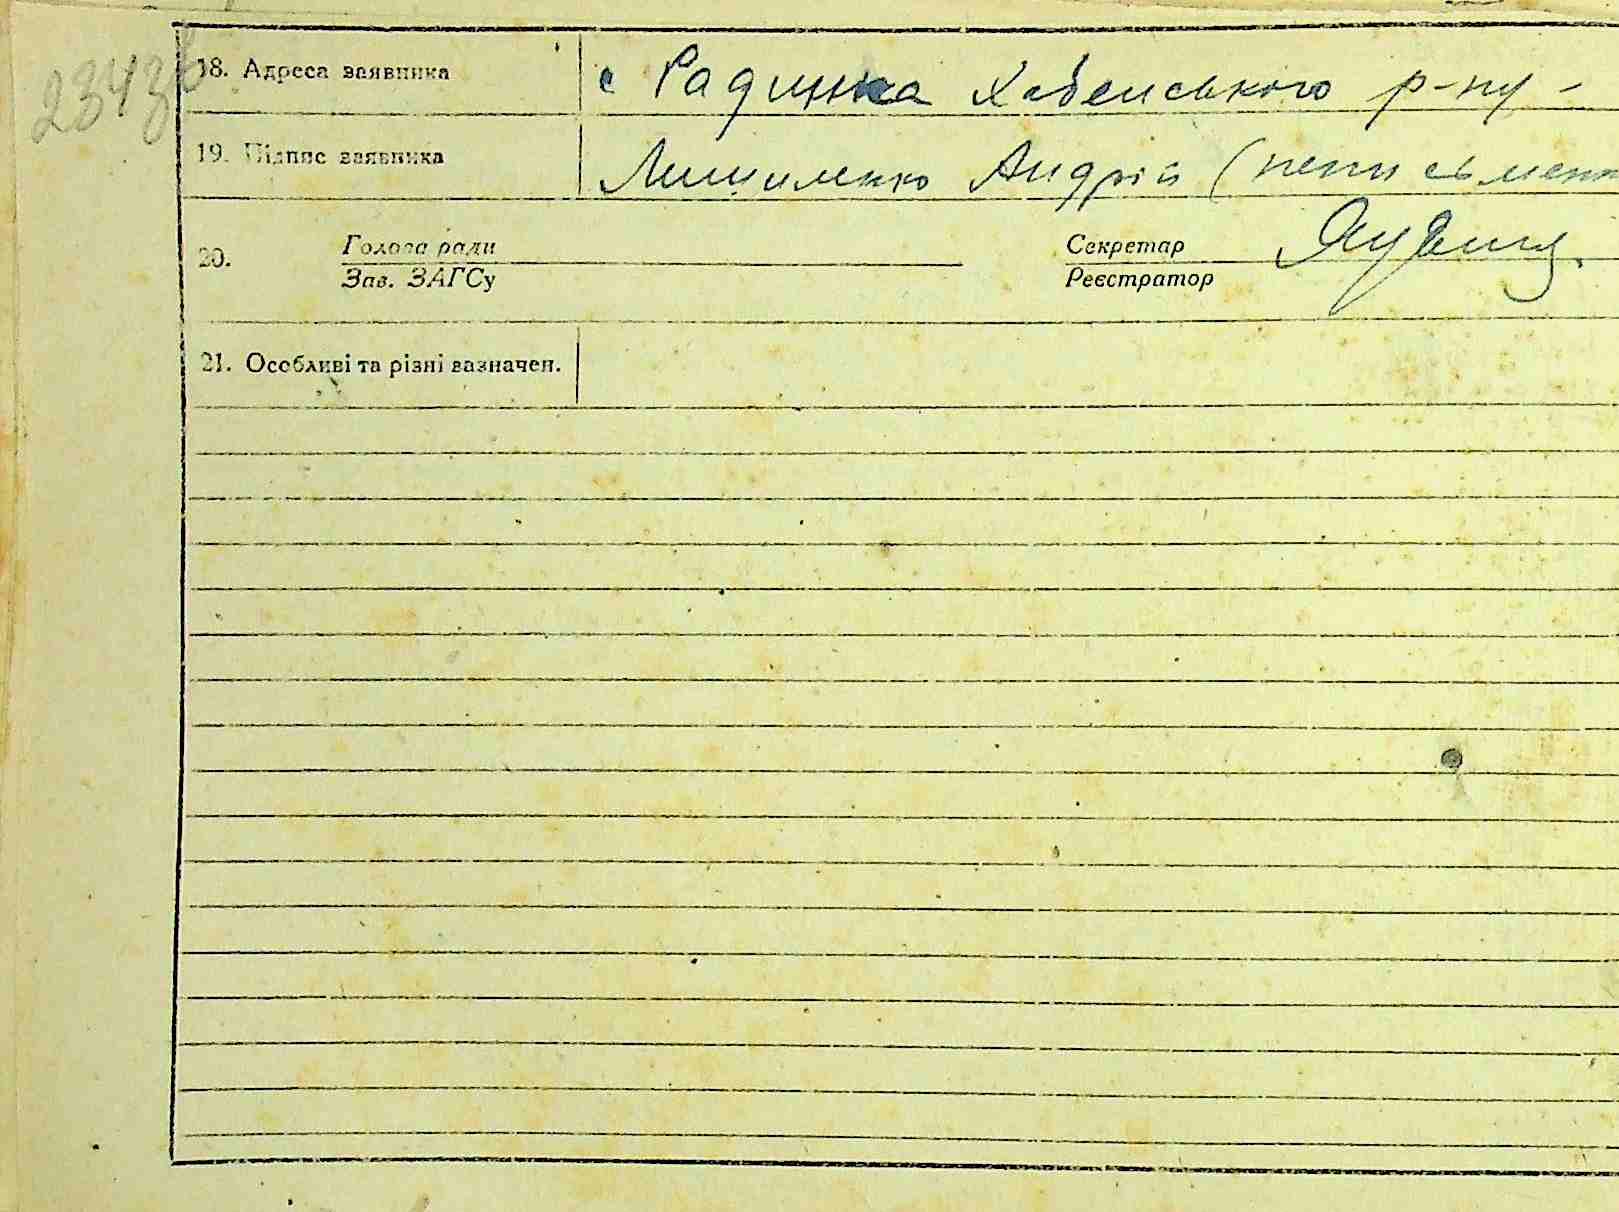 18. Адреса заявника с Радинка Хабенського р-ну -
19. Підпис заявника Андрій (неписьменн
20. Голова ради Секретар
Зав. ЗАГСу Реєстратор
21. Особливі та різні зазначен.